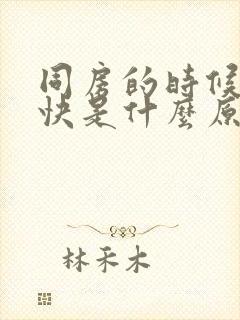 同房的時候
快是什麼原
林禾木